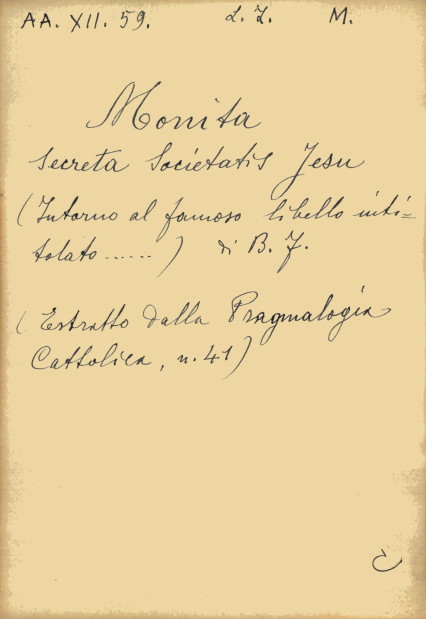 AA. XII. 59. L. Z. M.
Monita
Secreta Societatis Jesu
(Intorno al famoso libello inti=
tolato ......) di B. J.
(Estratto dalla Pragmalogia
Cattolica, n. 41)